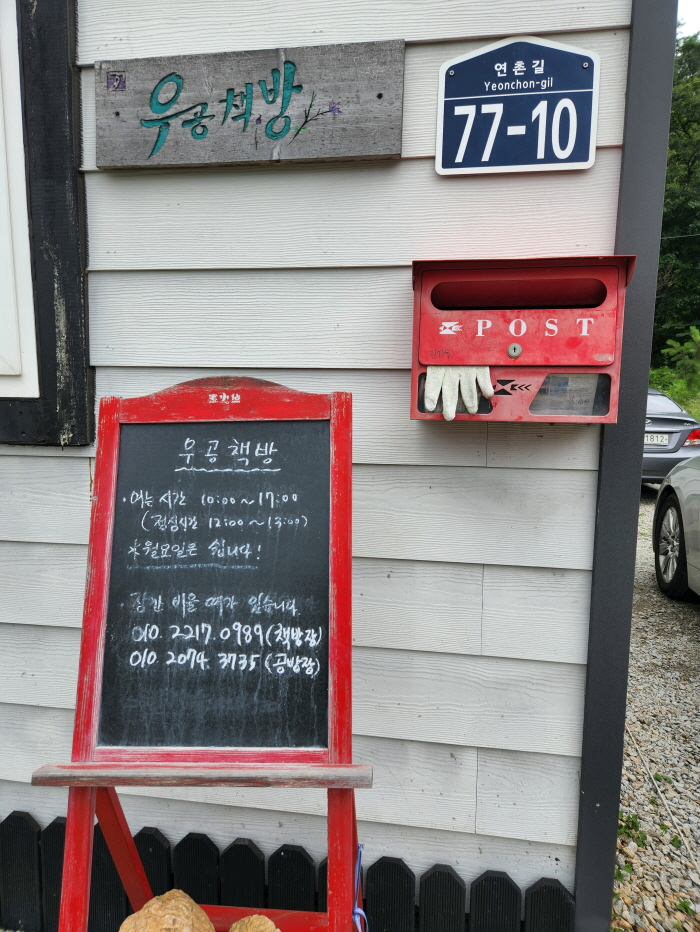 우공책방
연촌길
Yeonchon-gil
77-10
POST
우공책방
· 여는 시간 10:00~17:00
(점심시간 12:00~13:00)
※ 월요일은 쉽니다!
· 잠깐 비울 때가 있습니다.
010. 2217. 0989 (책방장)
010. 2074. 3735 (공방장)
1812